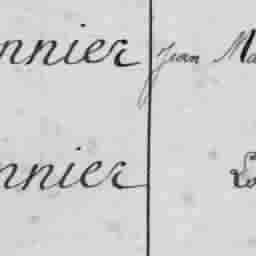 nnier Jean Ma
nnier Lo